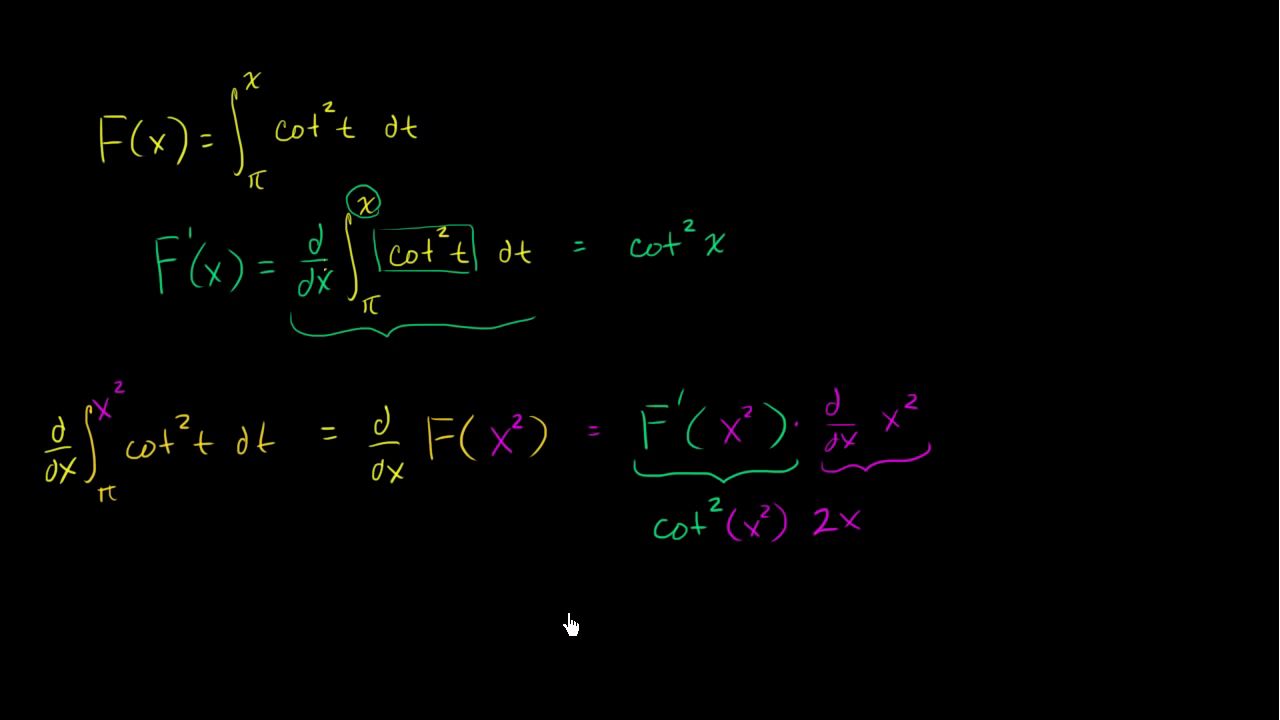 F(x) = ∫_π^x cot² t dt
F'(x) = d/dx ∫_π^x cot² t dt = cot² x
d/dx ∫_π^(x²) cot² t dt = d/dx F(x²) = F'(x²) · d/dx x²
cot² (x²) 2x